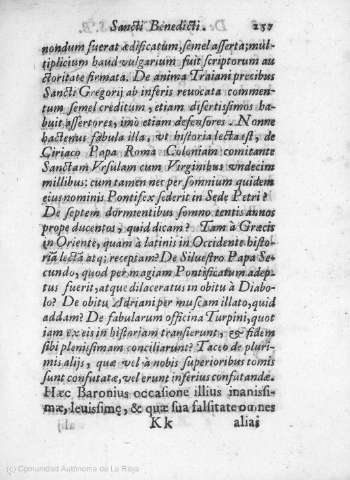 Sancti Benedicti. 257
nondum fuerat ædificatum, semel asserta; mul-
tiplicium haud vulgarium fuit scriptorum au
ctoritate firmata. De anima Traiani precibus
Sancti Gregorij ab inferis reuocata commen-
tum semel creditum, etiam disertissimos ha-
buit assertores, imò etiam defensores. Nonne
hactenus fabula illa, vt historia lecta est, de
Ciriaco Papa Roma Coloniam comitante
Sanctam Vrsulam cum Virginibus vndecim
millibus; cum tamen nec per somnium quidem
eius nominis Pontifex sederit in Sede Petri?
De septem dormientibus somno tentis annos
prope ducentos, quid dicam? Tam à Græcis
in Oriente, quam à latinis in Occidente histo-
ria lecta atq; recepta? De Siluestro Papa Se-
cundo, quod per magiam Pontificatum adep-
tus fuerit, atque dilaceratus in obitu à Diabo-
lo? De obitu Adriani per muscam illato, quid
addam? De fabularum officina Turpini, quot
iam ex eis in historiam transierunt, & fidem
sibi plenissimam conciliarunt? Taceo de pluri-
mis alijs, quæ vel à nobis superioribus tomis
sunt confutatæ, vel erunt inferius confutandæ.
Hæc Baronius occasione illius inanissi-
mæ, leuissimę, & quæ sua falsitate omnes
Kk alias
(c) Comunidad Autónoma de La Rioja